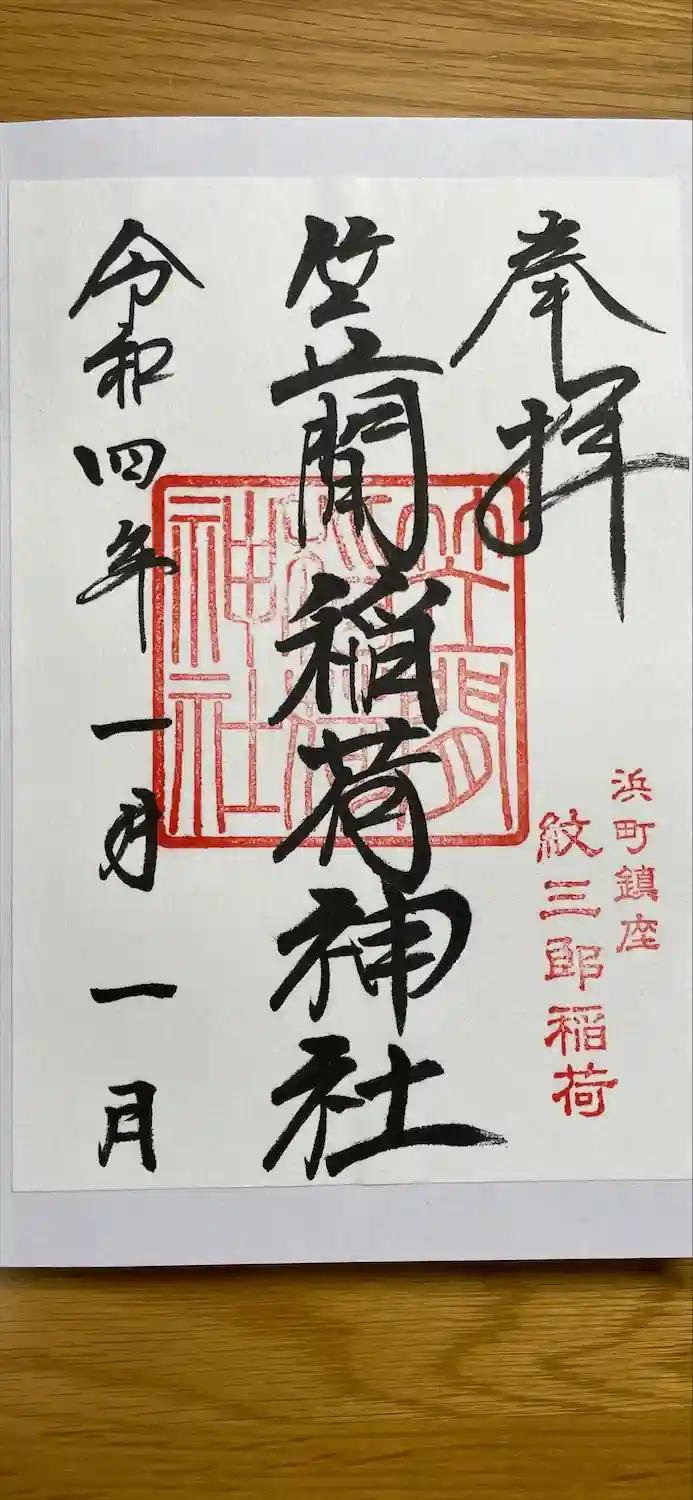 奉拝
浜町鎮座
紋三郎稲荷
笠間稲荷神社
笠間
稲荷
神社
令和四年一月一月